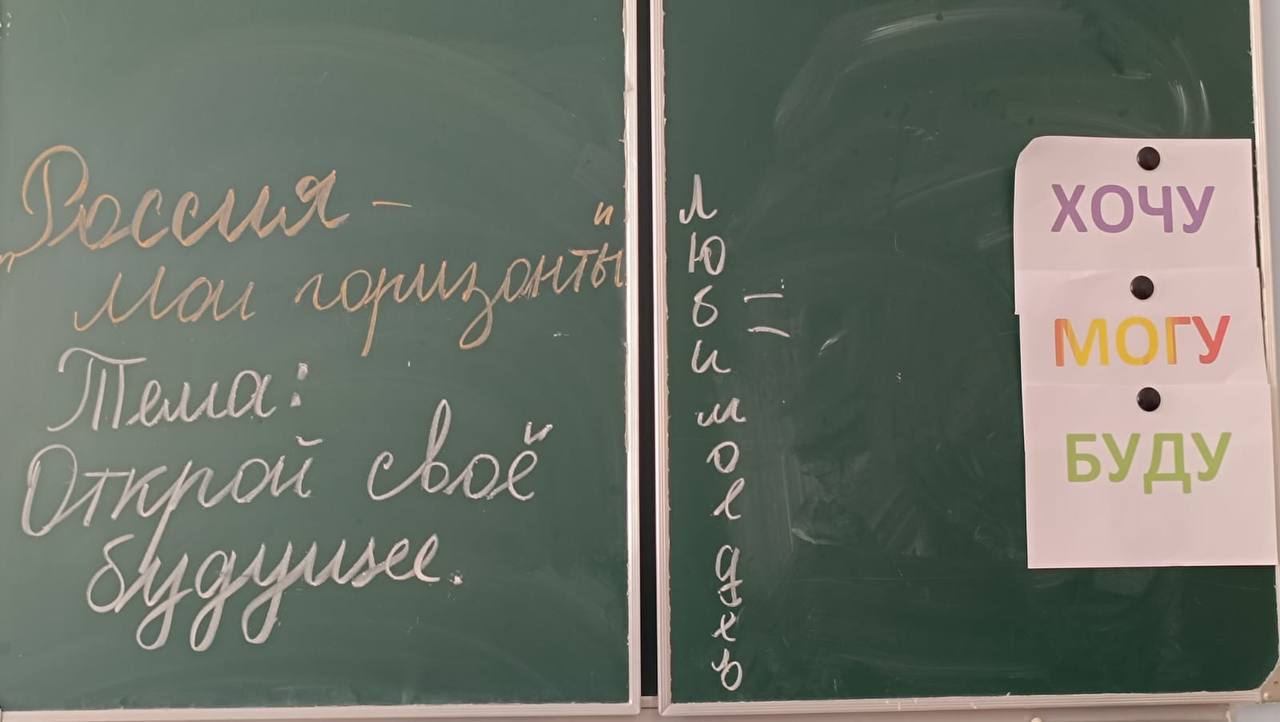 „Россия –
Мои горизонты"
Тема:
Открой своё
будущее.
л
Ю
б =
и
м
о
е
д
х
ХОЧУ
МОГУ
БУДУ